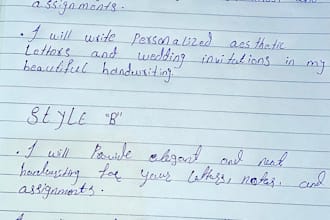 assignments.
• I will write personalized aesthetic
letters and wedding invitations in my
beautiful handwriting.
STYLE "B"
• I will Provide elegant and neat
handwriting for your letters, notes, and
assignments.